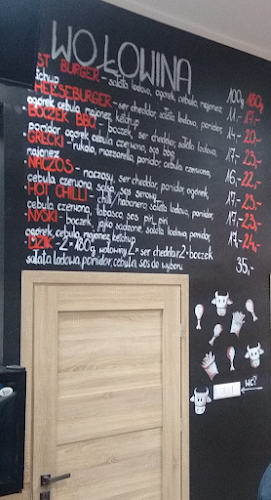 WOŁOWINA
100g 180g
ST BURGER - sałata lodowa, ogórek, cebula, majonez,
ketchup 11,- 17,-
CHEESEBURGER - ser cheddar, sałata lodowa, pomidor,
ogórek, cebula, majonez, ketchup 14,- 20,-
BOCZEK BBQ - boczek, ser cheddar, sałata lodowa,
pomidor, ogórek, cebula czerwona, sos bbq 17,- 23,-
GRECKI - rukola, mozzarella, pomidor, cebula czerwona,
majonez 17,- 23,-
NACZOS - naczosy, ser cheddar, pomidor, ogórek,
cebula czerwona, salsa, sos serowy 16,- 22,-
HOT CHILLI - chilli habanero, sałata lodowa, pomidor,
cebula czerwona, tabasco, sos piri, piri 17,- 23,-
NYSKI - boczek, jajko sadzone, sałata lodowa, pomidor,
ogórek, cebula, majonez, ketchup 17,- 24,-
DZIK - 2 × 180g wołowiny, 2 × ser cheddar, 2 × boczek
sałata lodowa, pomidor, cebula, sos do wyboru 35,-
WC!